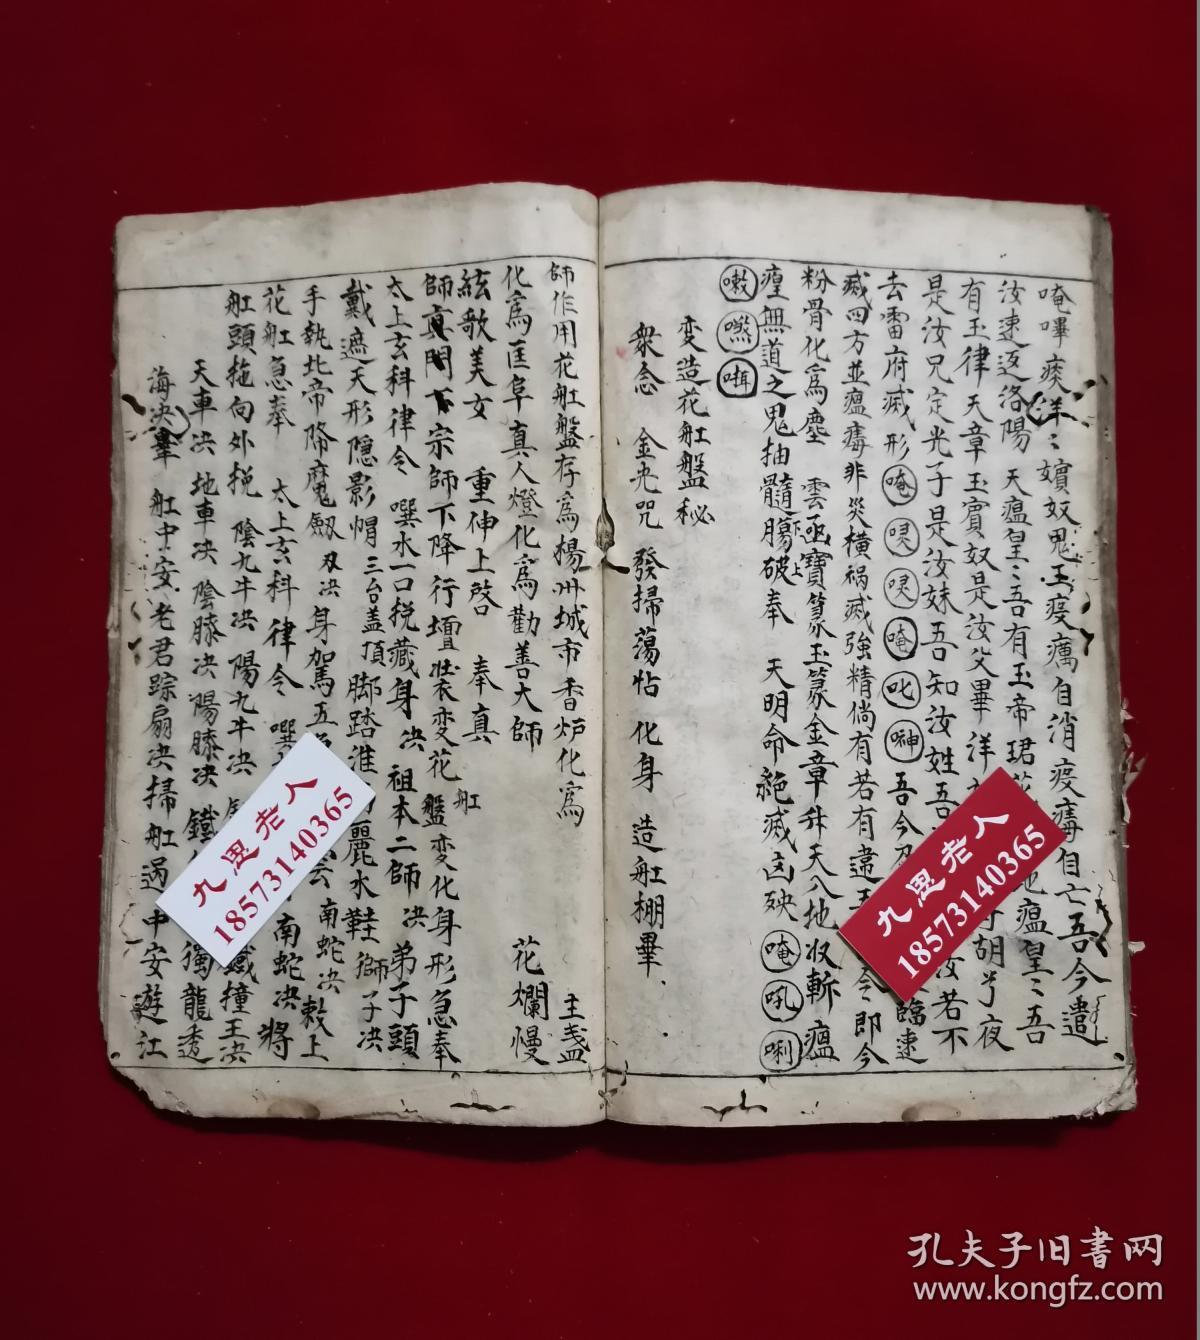 唵嗶㾭洋〻嬪奴鬼玉疫癘自消疫毒自亡吾今遣
汝速返洛陽 天瘟皇〻吾有玉帝珺 地瘟皇〻吾
有玉律天章玉寶奴是汝父畢洋 胡兮夜
是汝兄定光子是汝妹吾知汝姓吾 汝若不
去雷府滅形唵 唵叱 吾今 臨速
滅四方並瘟毒非災橫禍滅強精倘有若有違 令即今
粉骨化為塵 雲函寶篆玉篆金章升天入地收斬瘟
瘟無道之鬼抽髓膓破奉 天明命絕滅凶殃唵吼唎

变造花舡盤秘
衆念 金光咒 發掃蕩帖 化身 造舡棚畢
師作用花舡盤存為楊州城市香炉化為 主盞
化為匡阜真人燈化為勸善大師 花爛慢
絃歌美女 重伸上啓 奉真
師真閗下宗師下降行壇壮衣变花舡盤变化身形急奉
太上玄科律令 噀水一口挩藏身決 祖本二師決 弟子頭
戴遮天形隱影帽 三台盖頂 脚踏淮 麗水鞋 獅子決
手執北帝降魔劔刄決 身駕五 雲南蛇決 敕上
花舡急奉 太上玄科律令 噀 南蛇決 將
舡頭拖向外挩 陰九牛決 陽九牛決 鐵撞王決
天車決地車決陰膝決陽膝決 獨龍透
海決畢 舡中安老君踪扇決掃舡過中安遊江
九思老人
18573140365
九思老人
18573140365
孔夫子旧书网
www.kongfz.com